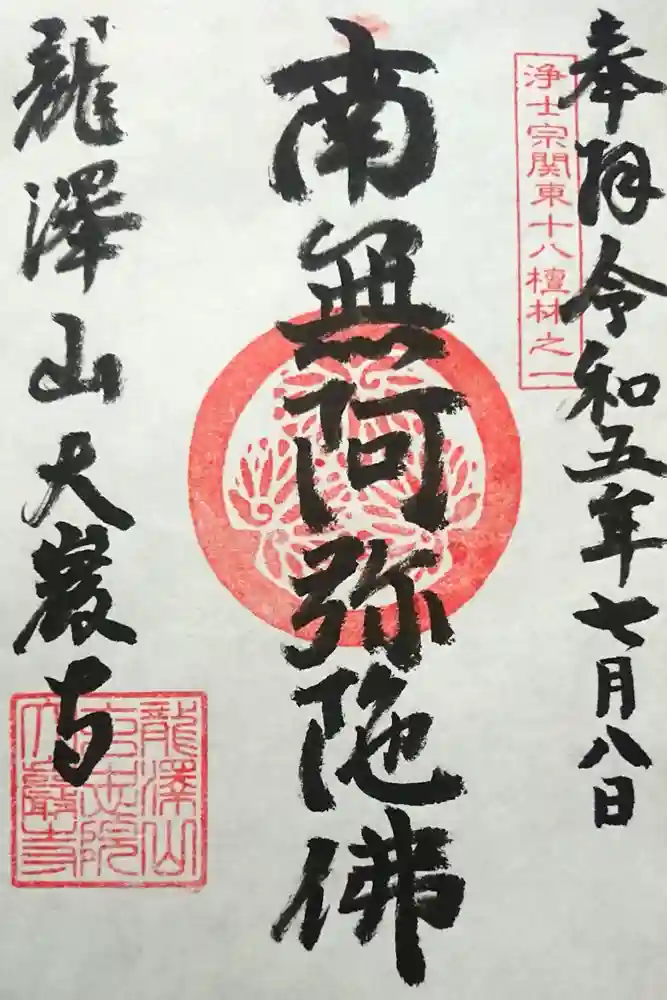 奉拝 令和五年七月八日
浄土宗関東十八檀林之一
南無阿弥陀佛
龍澤山 大巌寺
龍澤山
玄忠院
大巖寺